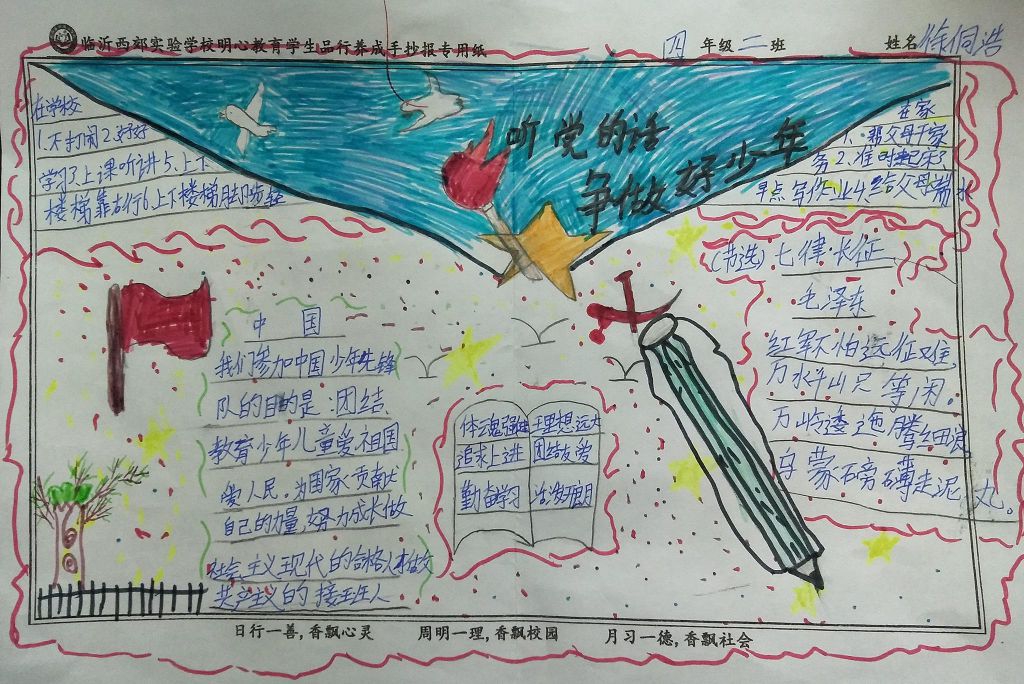 临沂西郊实验学校明心教育学生品行养成手抄报专用纸
四 年级 二 班
姓名 徐侗浩
听党的话
争做好少年
在学校
1.不打闹2.好好
学习3.上课听讲5.上下
楼梯靠右行6.上下楼梯脚步轻
在家
1.帮父母干家
务2.准时起床3
早点写作业4.给父母端水
(节选)七律·长征
毛泽东
红军不怕远征难,
万水千山只等闲。
五岭逶迤腾细浪
乌蒙磅礴走泥丸。
中国
我们参加中国少年先锋
队的目的是:团结
教育少年儿童爱祖国
爱人民。为国家贡献
自己的力量,努力成长做
社会主义现代的合格人才做
共产主义的接班人
体魂强健 理想远大
追求上进 团结友爱
勤奋学习 活泼开朗
日行一善,香飘心灵 周明一理,香飘校园 月习一德,香飘社会